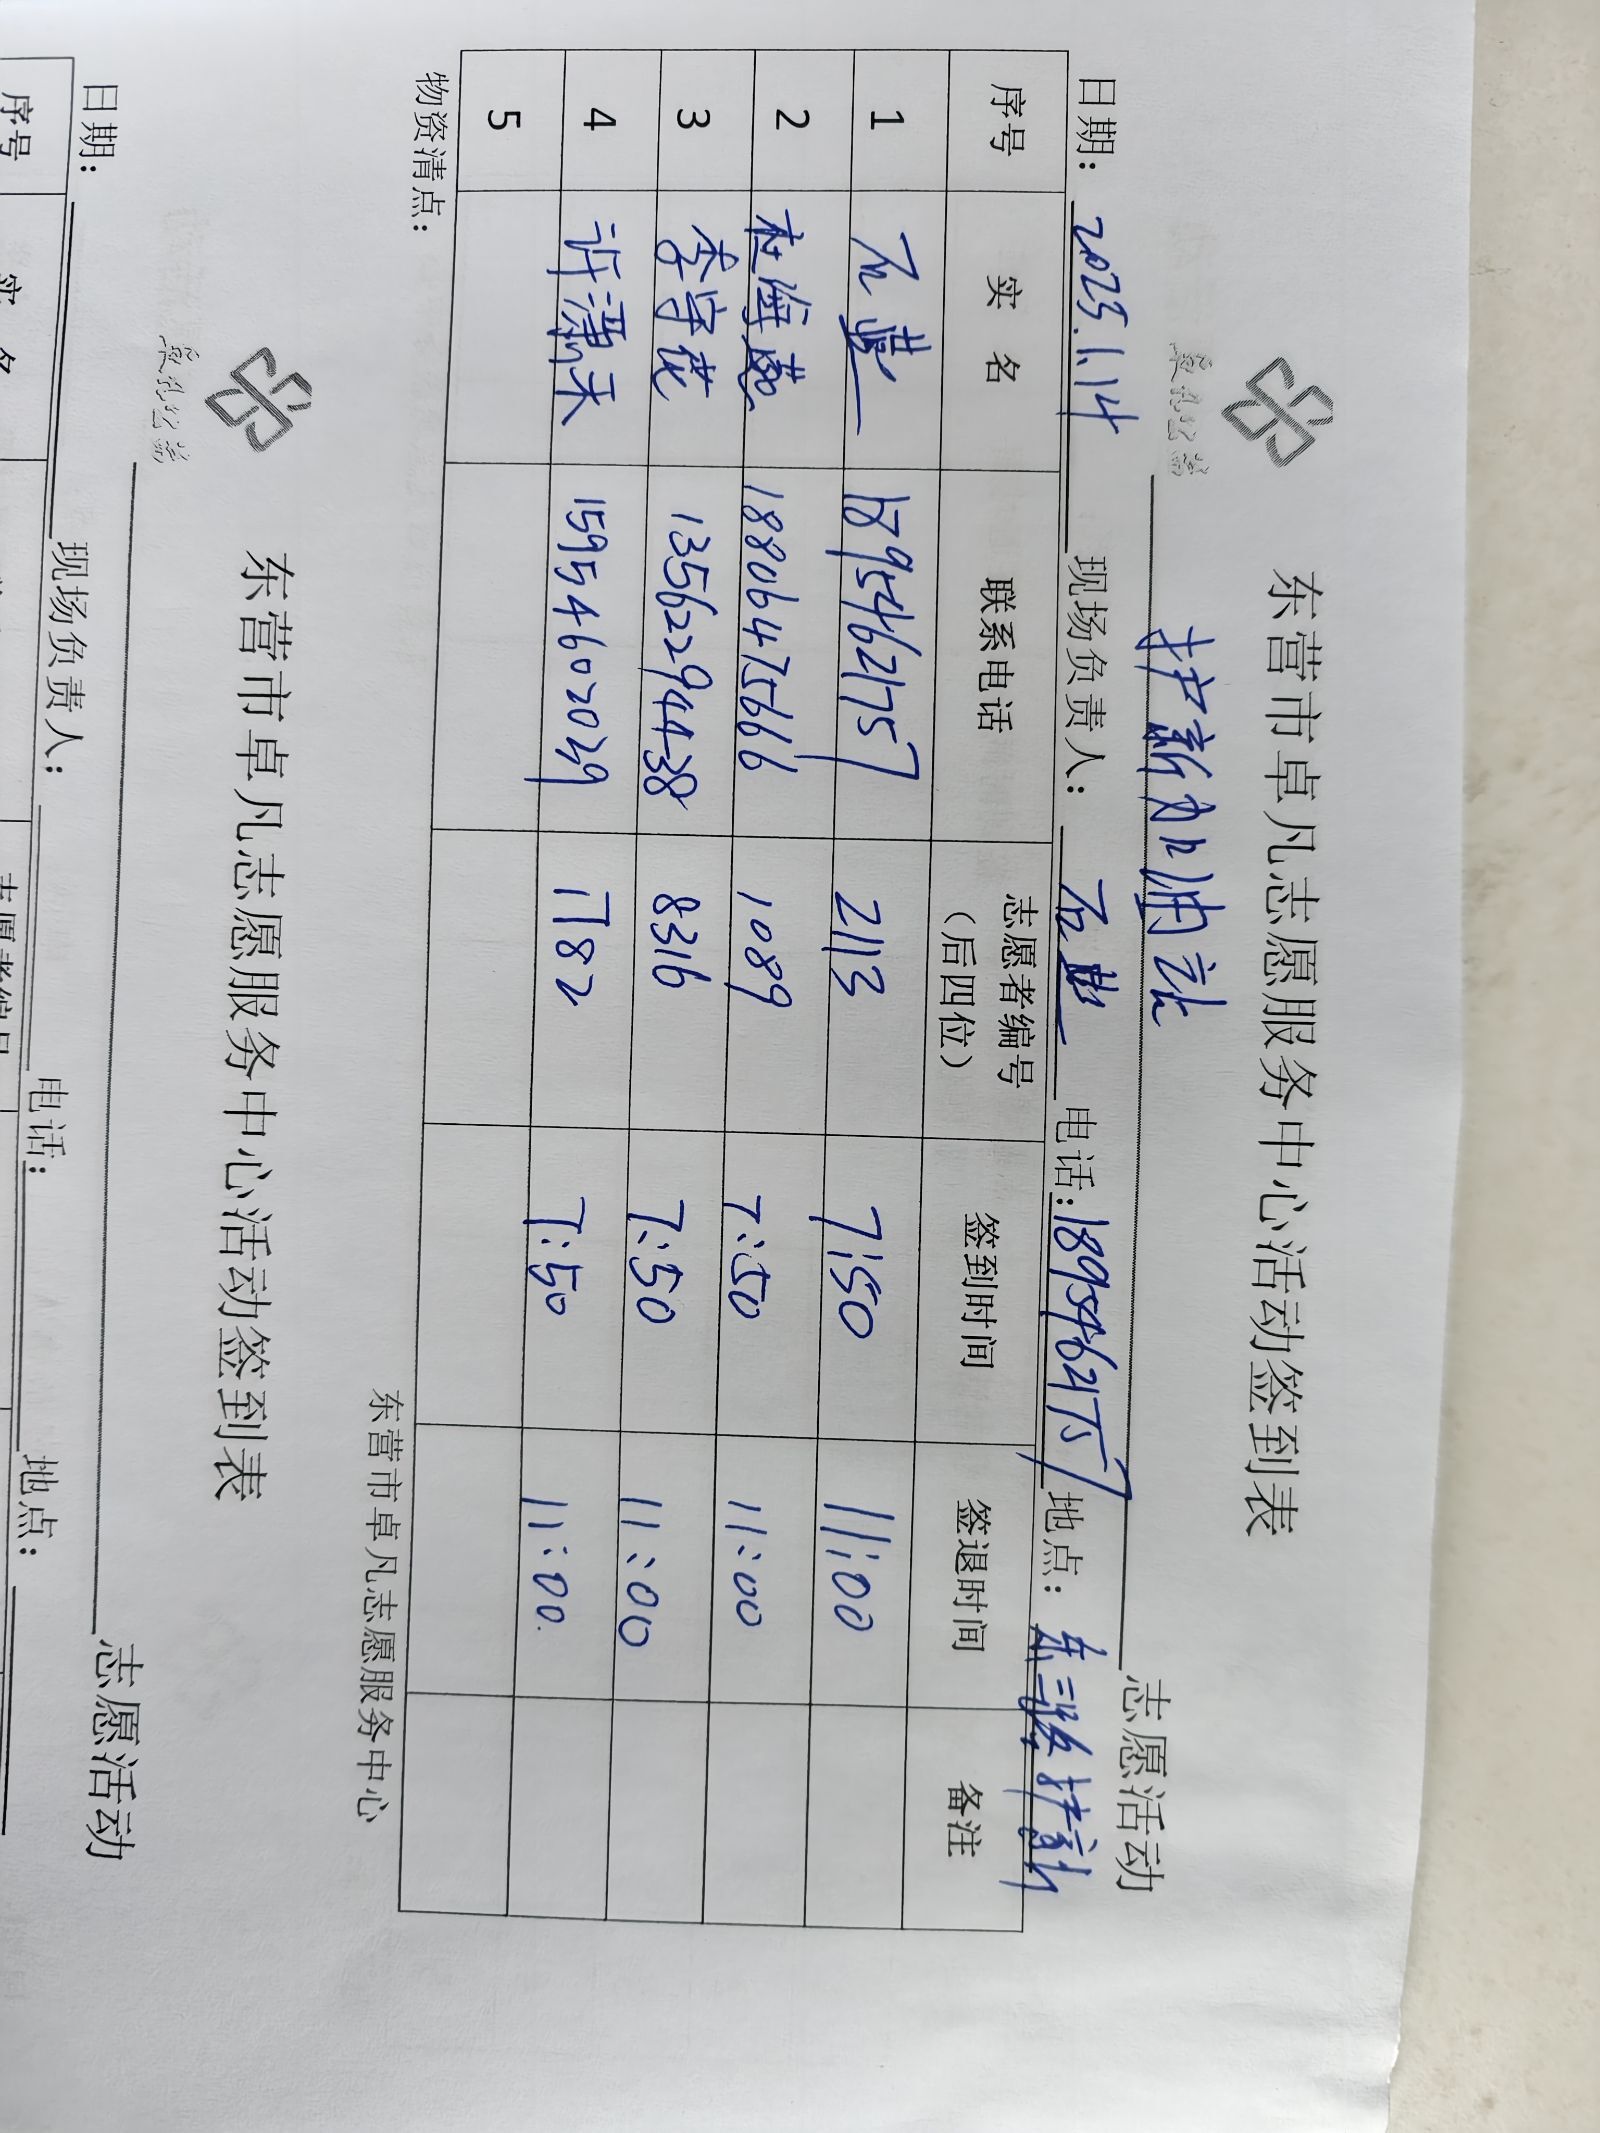 东营市卓凡志愿服务中心活动签到表
护新加油站 志愿活动
日期: 2023.1.14 现场负责人: 石燕 电话:18954621757 地点: 东三路护新
序号 实 名 联系电话 志愿者编号（后四位） 签到时间 签退时间 备注
1 石燕 18954621757 2113 7:50 11:00
2 杜海燕 18806475666 1089 7:50 11:00
3 李学优 13562294438 8316 7:50 11:00
4 许潇天 15954602039 1782 7:50 11:00
5
物资清点:
东营市卓凡志愿服务中心
东营市卓凡志愿服务中心活动签到表
志愿活动
日期: 现场负责人: 电话: 地点:
序号 实 名 志愿者编号